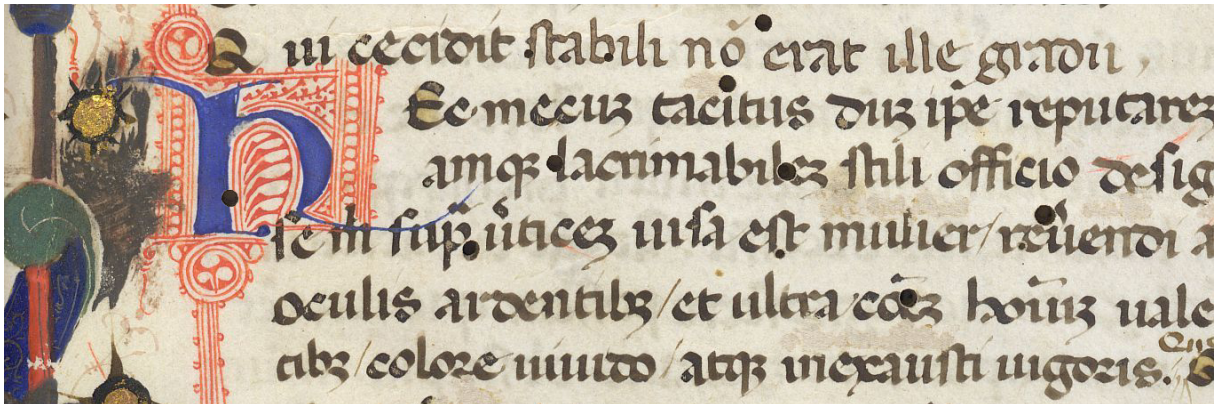 Qui cecidit stabili nõ erat ille gradu
hEc mecuȝ tacitus duȝ ip̃e reputareȝ
amqȝ lacrimabileȝ stili officio desig
se m̃ sup̃ ũticeȝ uisa est mulier / reũendi a
oculis ardentibȝ / et ultra cõeȝ hoĩuȝ uale
tibȝ / colore uiuido / atqȝ inexausti uigoris.